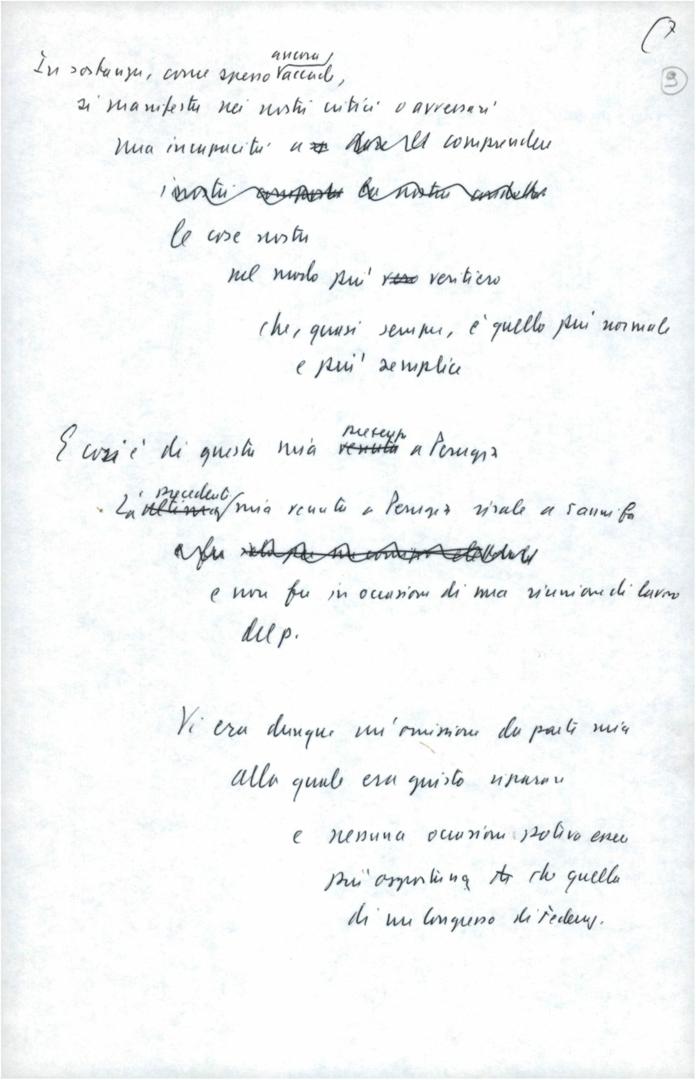 7
9
In sostanza, come spesso ancora accade,
si manifesta nei nostri critici o avversari
una incapacità a comprendere
i nostri la nostra
le cose nostre
nel modo più vero veritiero
che, quasi sempre, è quello più normale
e più semplice
E così è di questa mia venuta presenza a Perugia
La ultima precedente mia venuta a Perugia risale a 5 anni fa
e fu
e non fu in occasione di una riunione di lavoro
del p.
Vi era dunque un'omissione da parte mia
alla quale era giusto riparare
e nessuna occasione poteva essere
più opportuna che quella
di un Congresso di Federaz.